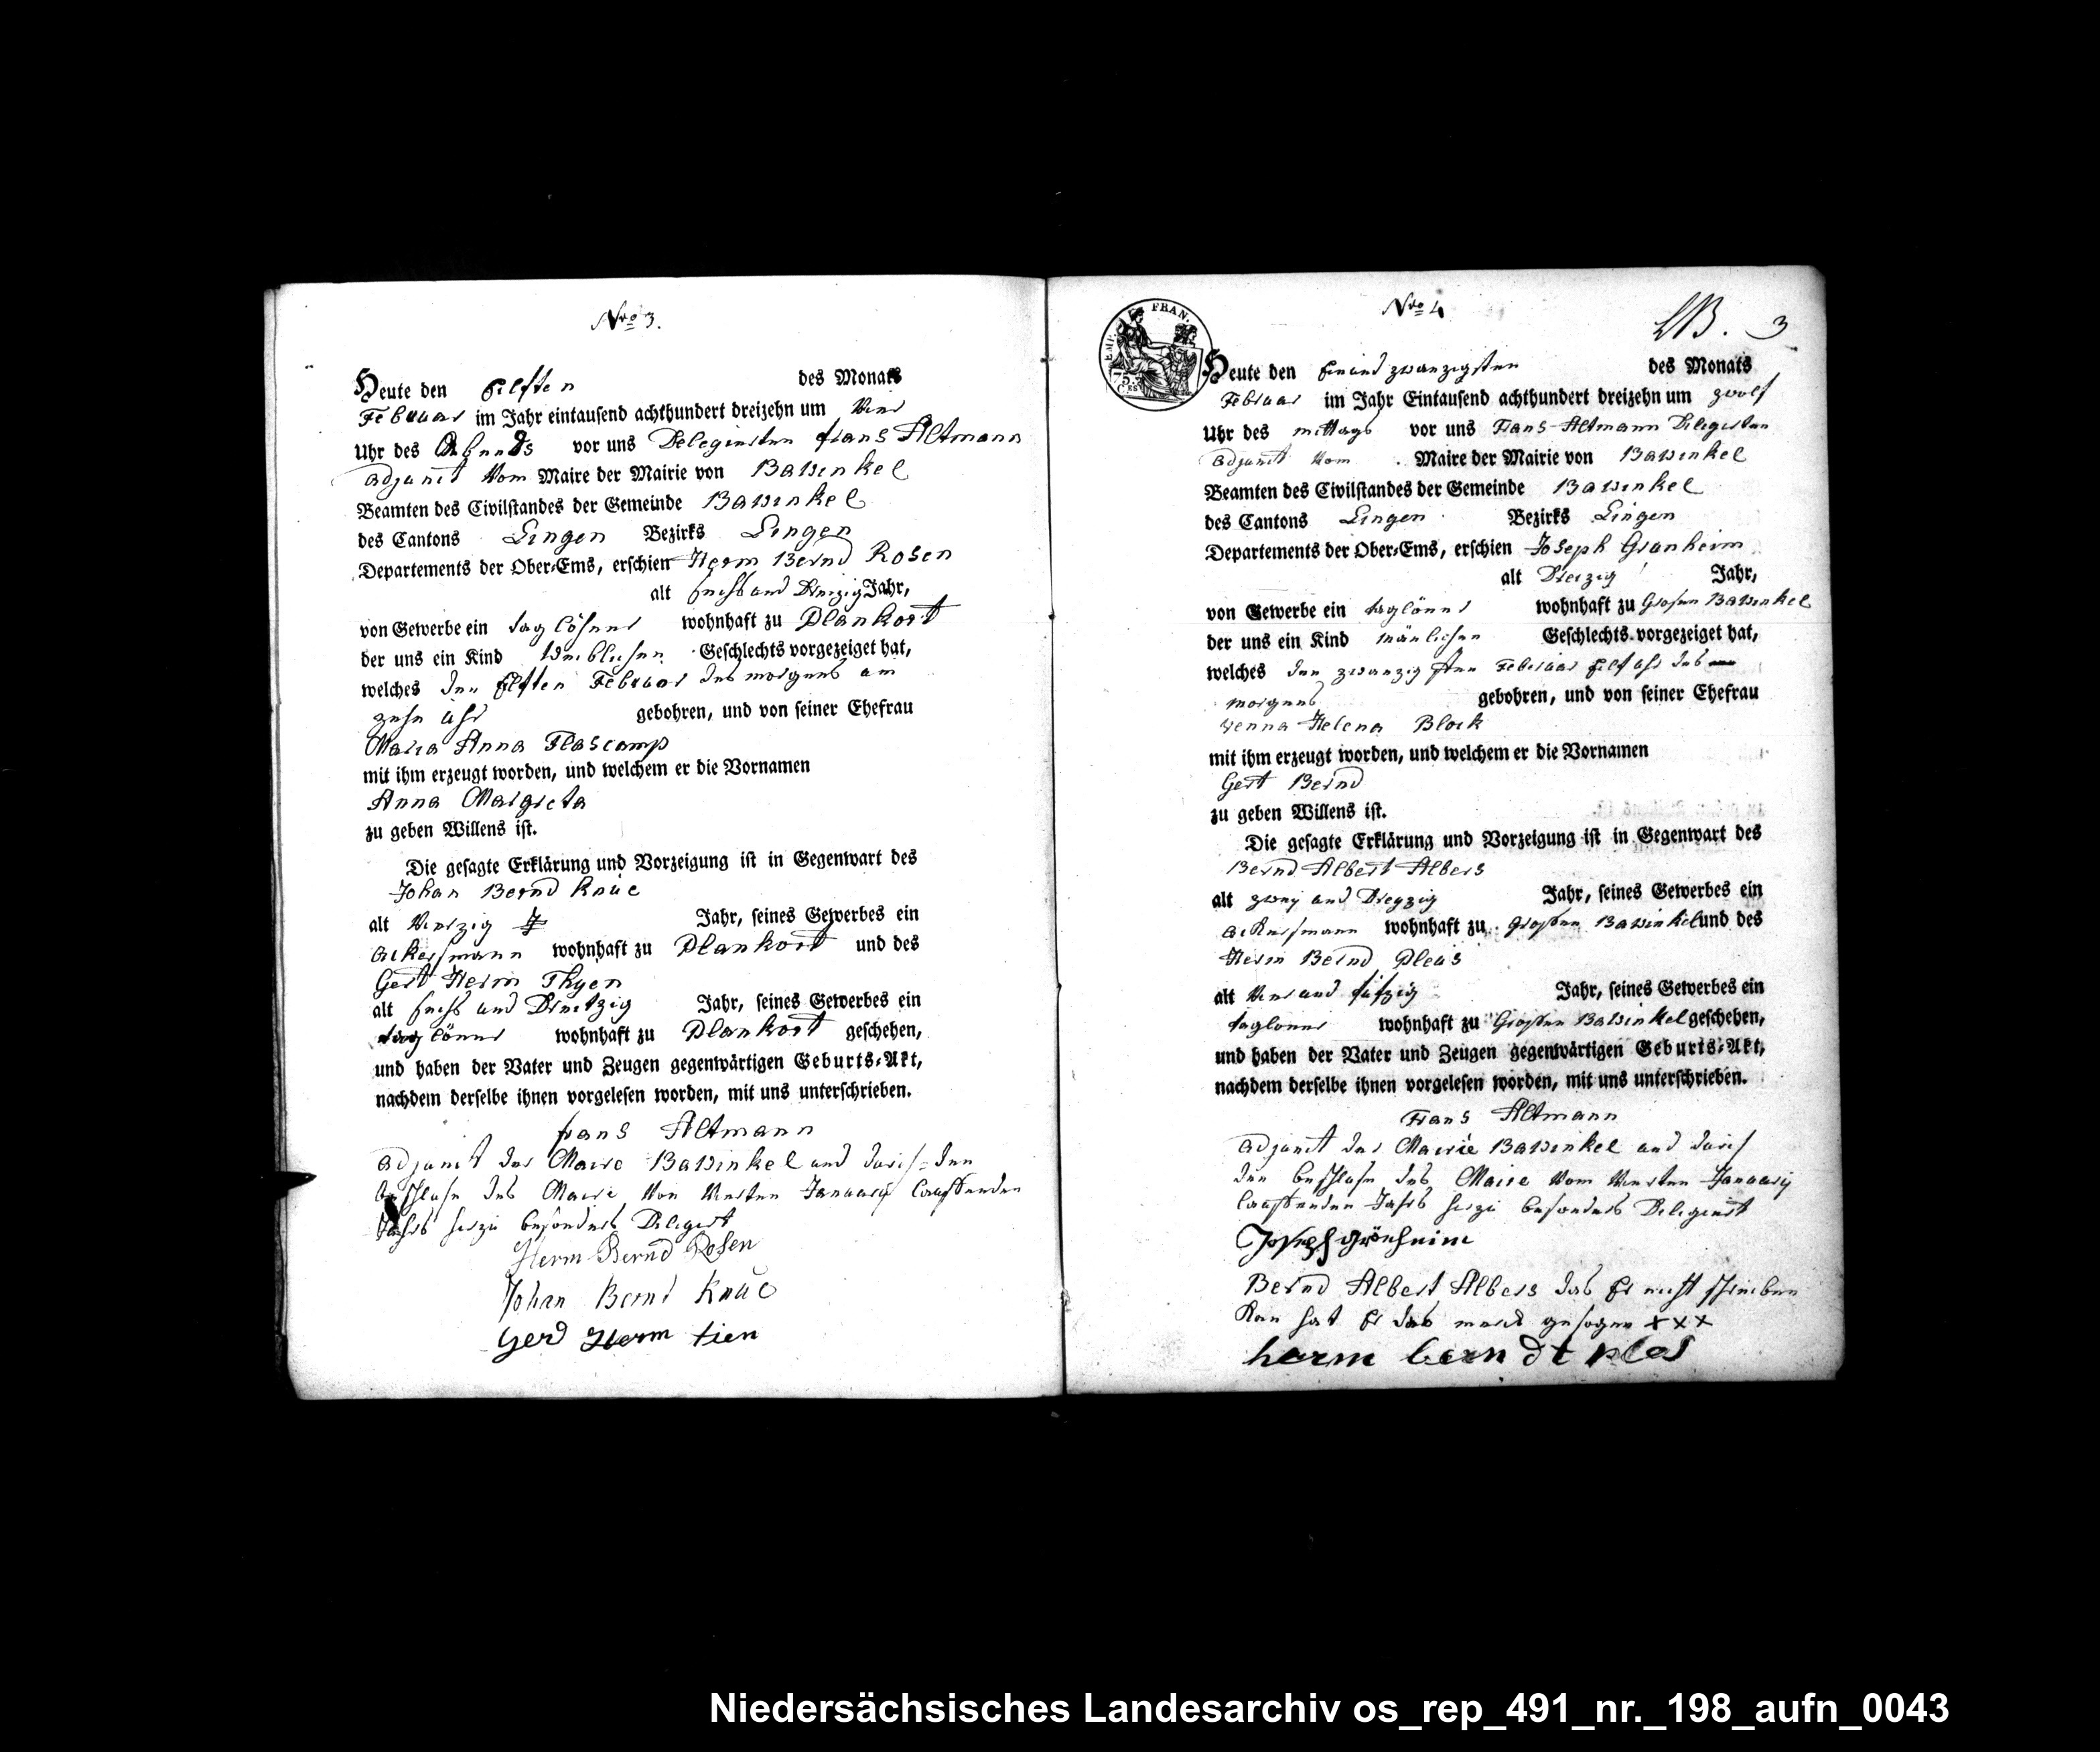 Nro 3.
Heute den Eilften des Monats
Februar im Jahr eintausend achthundert dreizehn um Vier
Uhr des Abends vor uns Delegirten frans Altmann
Adjunct Vom Maire der Mairie von Bawinkel
Beamten des Civilstandes der Gemeinde Bawinkel
des Cantons Lingen Bezirks Lingen
Departements der Ober-Ems, erschien Herm Bernd Rosen
alt sechs und Dreizig Jahr,
von Gewerbe ein taglöhner wohnhaft zu Plankort
der uns ein Kind Weiblichen Geschlechts vorgezeiget hat,
welches den Eilften Februar des morgens um
zehn uhr gebohren, und von seiner Ehefrau
Maria Anna Flascamp
mit ihm erzeugt worden, und welchem er die Vornamen
Anna Margreta
zu geben Willens ist.
Die gesagte Erklärung und Vorzeigung ist in Gegenwart des
Johan Bernd Knüe
alt Vierzig Jahr, seines Gewerbes ein
Ackersmann wohnhaft zu Plankort und des
Gert Herm Thyen
alt sechs und Dreitzig Jahr, seines Gewerbes ein
taglönner wohnhaft zu Plankort geschehen,
und haben der Vater und Zeugen gegenwärtigen Geburts-Akt,
nachdem derselbe ihnen vorgelesen worden, mit uns unterschrieben.
frans Altmann
Adjunct der Maire Bawinkel und durch den
beschluss des Maire Von Vierten January lauffenden
Jahrs hierzu besonders Delegirt
Herm Bernd Rosen
Johan Bernd Knüe
Gerd Herm tien
Nro 4
3
EMP. FRAN.
Heute den Einund zwanzigsten des Monats
Februar im Jahr Eintausend achthundert dreizehn um zwolf
Uhr des mittags vor uns Frans Altmann Delegirten
Adjunct Vom Maire der Mairie von Bawinkel
Beamten des Civilstandes der Gemeinde Bawinkel
des Cantons Lingen Bezirks Lingen
Departements der Ober-Ems, erschien Joseph Gronheim
alt Dreizig Jahr,
von Gewerbe ein taglönner wohnhaft zu Grosen Bawinkel
der uns ein Kind mänlichen Geschlechts vorgezeiget hat,
welches den zwanzigsten Februar Eilf uhr des
morgens gebohren, und von seiner Ehefrau
Helena Block
mit ihm erzeugt worden, und welchem er die Vornamen
Gert Bernd
zu geben Willens ist.
Die gesagte Erklärung und Vorzeigung ist in Gegenwart des
Bernd Albert Albers
alt zwey und Dreyzig Jahr, seines Gewerbes ein
Ackersmann wohnhaft zu Grossen Bawinkel und des
Herm Bernd Pleus
alt Vier und fufzig Jahr, seines Gewerbes ein
taglonner wohnhaft zu Grossen Bawinkel geschehen,
und haben der Vater und Zeugen gegenwärtigen Geburts-Akt,
nachdem derselbe ihnen vorgelesen worden, mit uns unterschrieben.
Frans Altmann
Adjunct der Mairie Bawinkel und durch
den beschluss des Maire Vom Vierten January
lauffenden Jahrs hierzu besonders Delegirt
Joseph Grönheim
Bernd Albert Albers das Er nicht schreiben
Kan hat Er das merck gesogen xxx
harm berndt ples
Niedersächsisches Landesarchiv os_rep_491_nr._198_aufn_0043